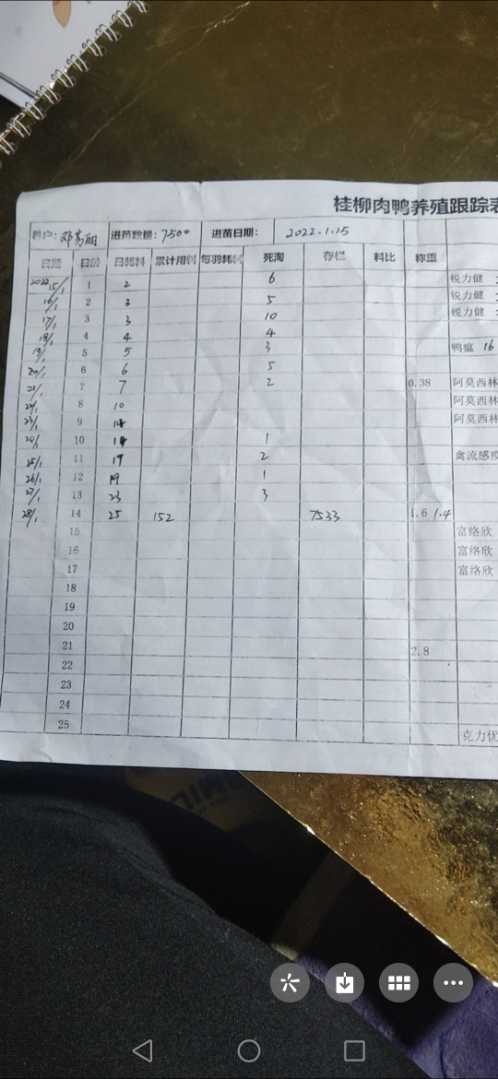 桂柳肉鸭养殖跟踪表
进苗数量：7500 进苗日期： 2022.1.15
日期 日龄 日耗料 累计用料 每羽耗料 死淘 存栏 料比 称重
2022 15/1 1 2 6 锐力健
16/1 2 2 5 锐力健
17/1 3 3 10 锐力健
18/1 4 4 4
19/1 5 5 3 鸭瘟 16
20/1 6 6 5
21/1 7 7 2 0.38 阿莫西林
22/1 8 10 阿莫西林
23/1 9 阿莫西林
24/1 10 1
25/1 11 19 2 禽流感疫
26/1 12 19 1
27/1 13 23 3
28/1 14 25 152 7533 1.6 1.4
15 富络欣
16 富络欣
17 富络欣
18
19
20
21 2.8
22
23
24
25 克力优